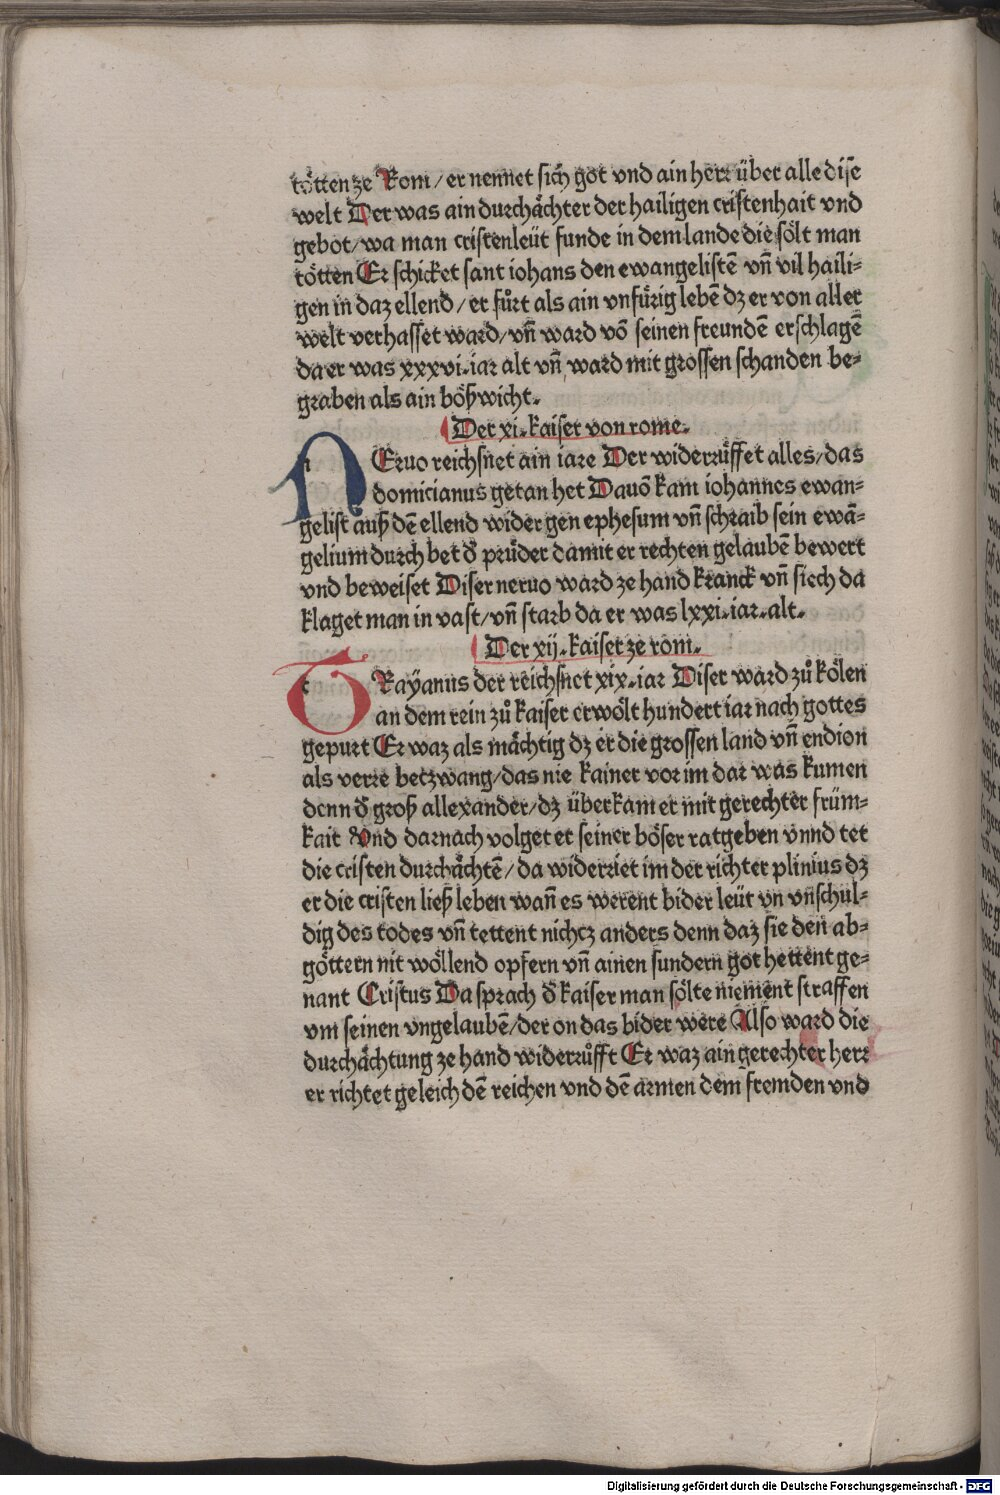 tötten ze Rom / er nennet sich got vnd ain herr über alle dise
welt Der was ain durchåchter der hailigen cristenhait vnd
gebot / wa man cristenleüt funde in dem lande die sölt man
tötten Er schicket sant iohans den ewangelistē vn̄ vil haili⸗
gen in daz ellend / er fůrt als ain vnfůrig lebē dz er von aller
welt verhasset ward / vn̄ ward vō seinen freundē erschlagē
da er was xxxvi. iar alt vn̄ ward mit grossen schanden be⸗
graben als ain bößwicht.
Der xi. kaiser von rome.
NEruo reichsnet ain iare Der widerrůffet alles / das
domicianus getan het Dauō kam iohannes ewan⸗
gelist auß dē ellend wider gen ephesum vn̄ schraib sein ewā⸗
gelium durch bet d̄ průder damit er rechten gelaubē bewert
vnd beweiset Diser neruo ward ze hand kranck vn̄ siech da
klaget man in vast / vn̄ starb da er was lxxi. iar. alt.
Der xij. kaiser ze rom.
TRayanus der reichsnet xix. iar Diser ward zů kölen
an dem rein zů kaiser erwölt hundert iar nach gottes
gepurt Er waz als måchtig dz er die grossen land vn̄ endion
als verre betzwang / das nie kainer vor im dar was kumen
denn d̄ groß allexander / dz überkam er mit gerechter früm⸗
kait Vnd darnach volget er seiner böser ratgeben vnnd tet
die cristen durchåchtē / da widerriet im der richter plinius dz
er die cristen ließ leben wan̄ es werent bider leüt vn vnschul⸗
dig des todes vn̄ tettent nichcz anders denn daz sie den ab⸗
göttern nit wöllend opfern vn̄ ainen sundern got hettent ge⸗
nant Cristus Da sprach d̄ kaiser man sölte niement straffen
vm seinen vngelaubē / der on das bider were Also ward die
durchåchtung ze hand widerrůfft Er waz ain gerechter herr
er richtet geleich dē reichen vnd dē armen dem fremden vnd
Digitalisierung gefördert durch die Deutsche Forschungsgemeinschaft - DFG